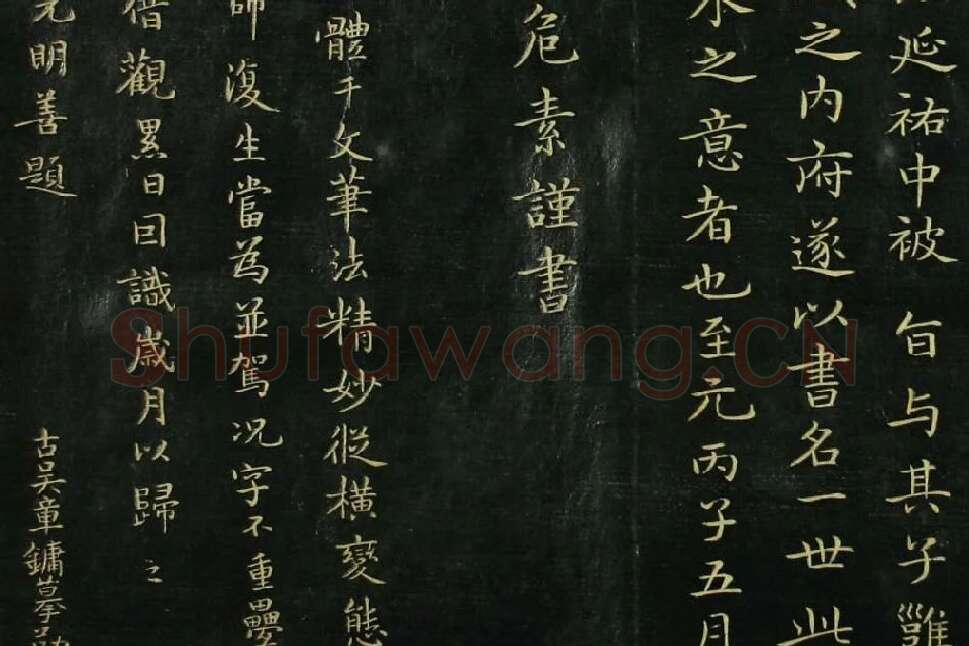 延祐中被 旨与其子雝
之内府遂以書名一世此
之意者也至元丙子五月
危素謹書
體于文筆法精妙從横變態
師復生當為並駕况字不重疊
借觀累日因識歲月以歸之
元明善題
古吴章鏞摹勒
Shufawang.CN